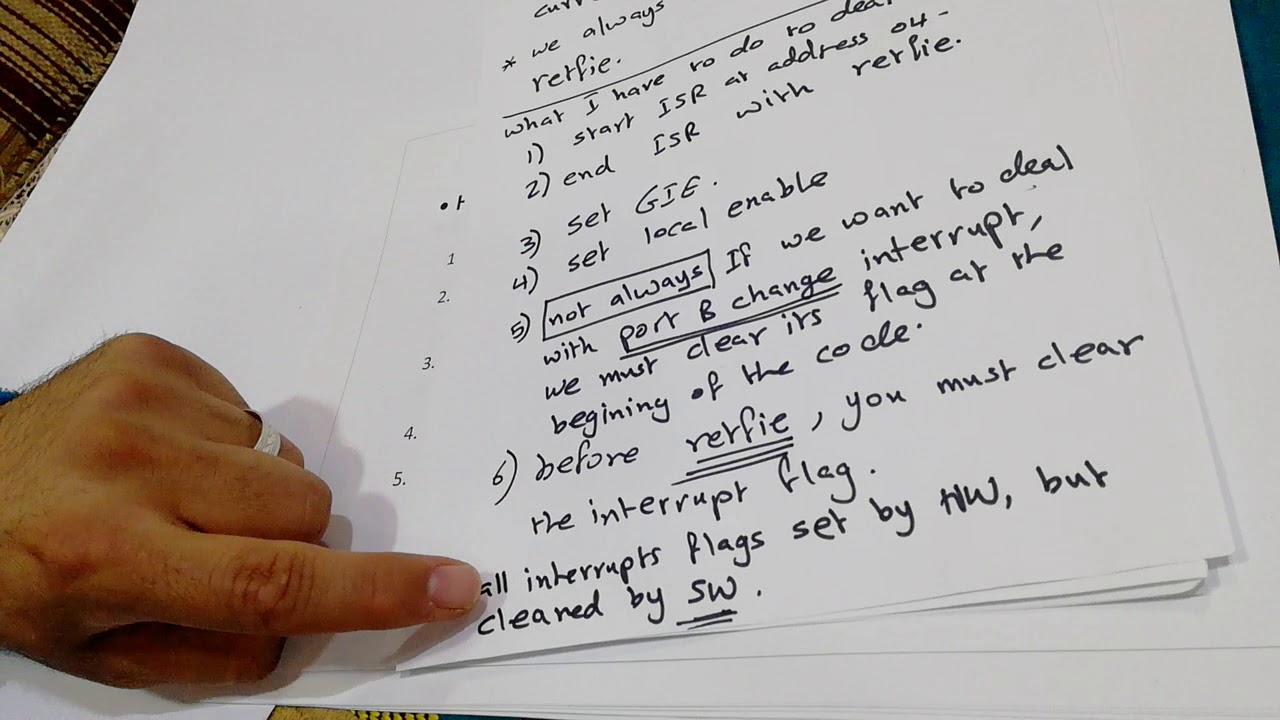 * we always
retfie.
what I have to do to deal
1) start ISR at address 04-
2) end ISR with retfie.
3) set GIE.
4) set local enable
5) not always If we want to deal
with port B change interrupt,
we must clear its flag at the
begining of the code.
6) before retfie, you must clear
the interrupt flag.
all interrupts flags set by HW, but
cleared by SW.
1
2.
3.
4.
5.